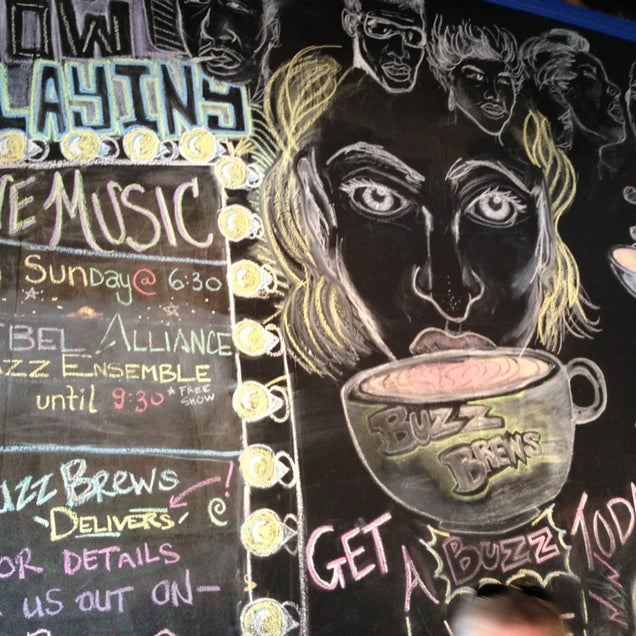 OW
LAYING
VE MUSIC
SUNDAY @ 6:30
BEL ALLIANCE
ZZ ENSEMBLE
until 9:30 *FREE SHOW
UZZ BREWS
DELIVERS !
OR DETAILS
US OUT ON-
BUZZ
BREWS
GET A BUZZ TOD